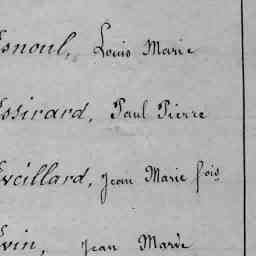 Esnoul, Louis Marie
Essirard, Paul Pierre
Eveillard, Jean Marie fois
Evin, Jean Marie